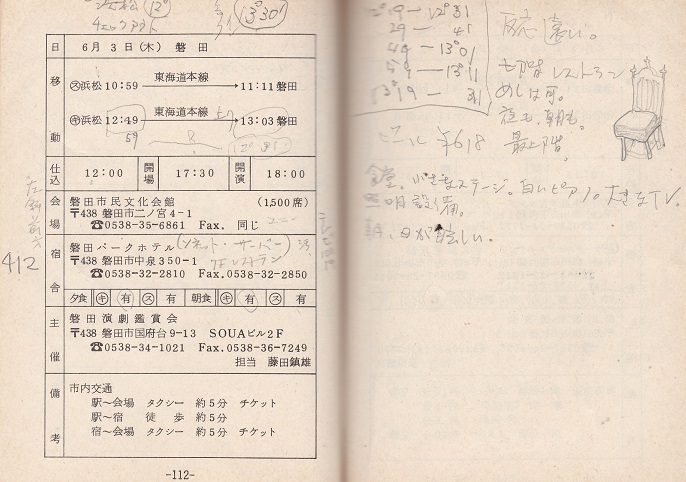 浜松 12°
チェックアウト
13°30'
日 6月3日(木) 磐田
移動
㋜浜松 10:59 東海道本線 11:11 磐田
㋖浜松 12:49 東海道本線 13:03 磐田
59
仕込 12:00 開場 17:30 開演 18:00
会場 磐田市民文化会館 (1,500席)
〒438 磐田市二ノ宮4-1
☎0538-35-6861 Fax. 同じ
412
宿舎 磐田パークホテル
7Fレストラン
〒438 磐田市中泉350-1
☎0538-32-2810 Fax.0538-32-2850
夕食 ㋖ 有 ㋜ 有 朝食 ㋖ 有 ㋜ 有
主催 磐田演劇鑑賞会
〒438 磐田市国府台9-13 SOUAビル2F
☎0538-34-1021 Fax.0538-36-7249
担当 藤田鎮雄
備考 市内交通
駅～会場 タクシー 約5分 チケット
駅～宿 徒歩 約5分
宿～会場 タクシー 約5分 チケット
-112-
12°19 — 12°31
29 — 41
49 — 13°01
59 — 13°11
13°19 — 31
反応 遠い。
七階 レストラン
めしは可。
夜も、朝も。
ビール ¥618
最上階。
食堂。小さなステージ。白いピアノ。大きなTV。
照明設備。
朝、日が眩しい。